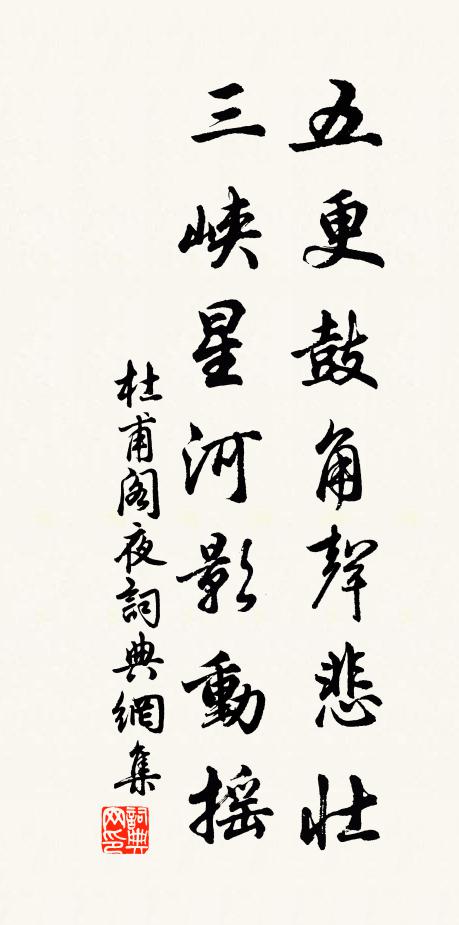 五更鼓角聲悲壯
三峽星河影動搖
杜甫閣夜詞典網集
詞典网印